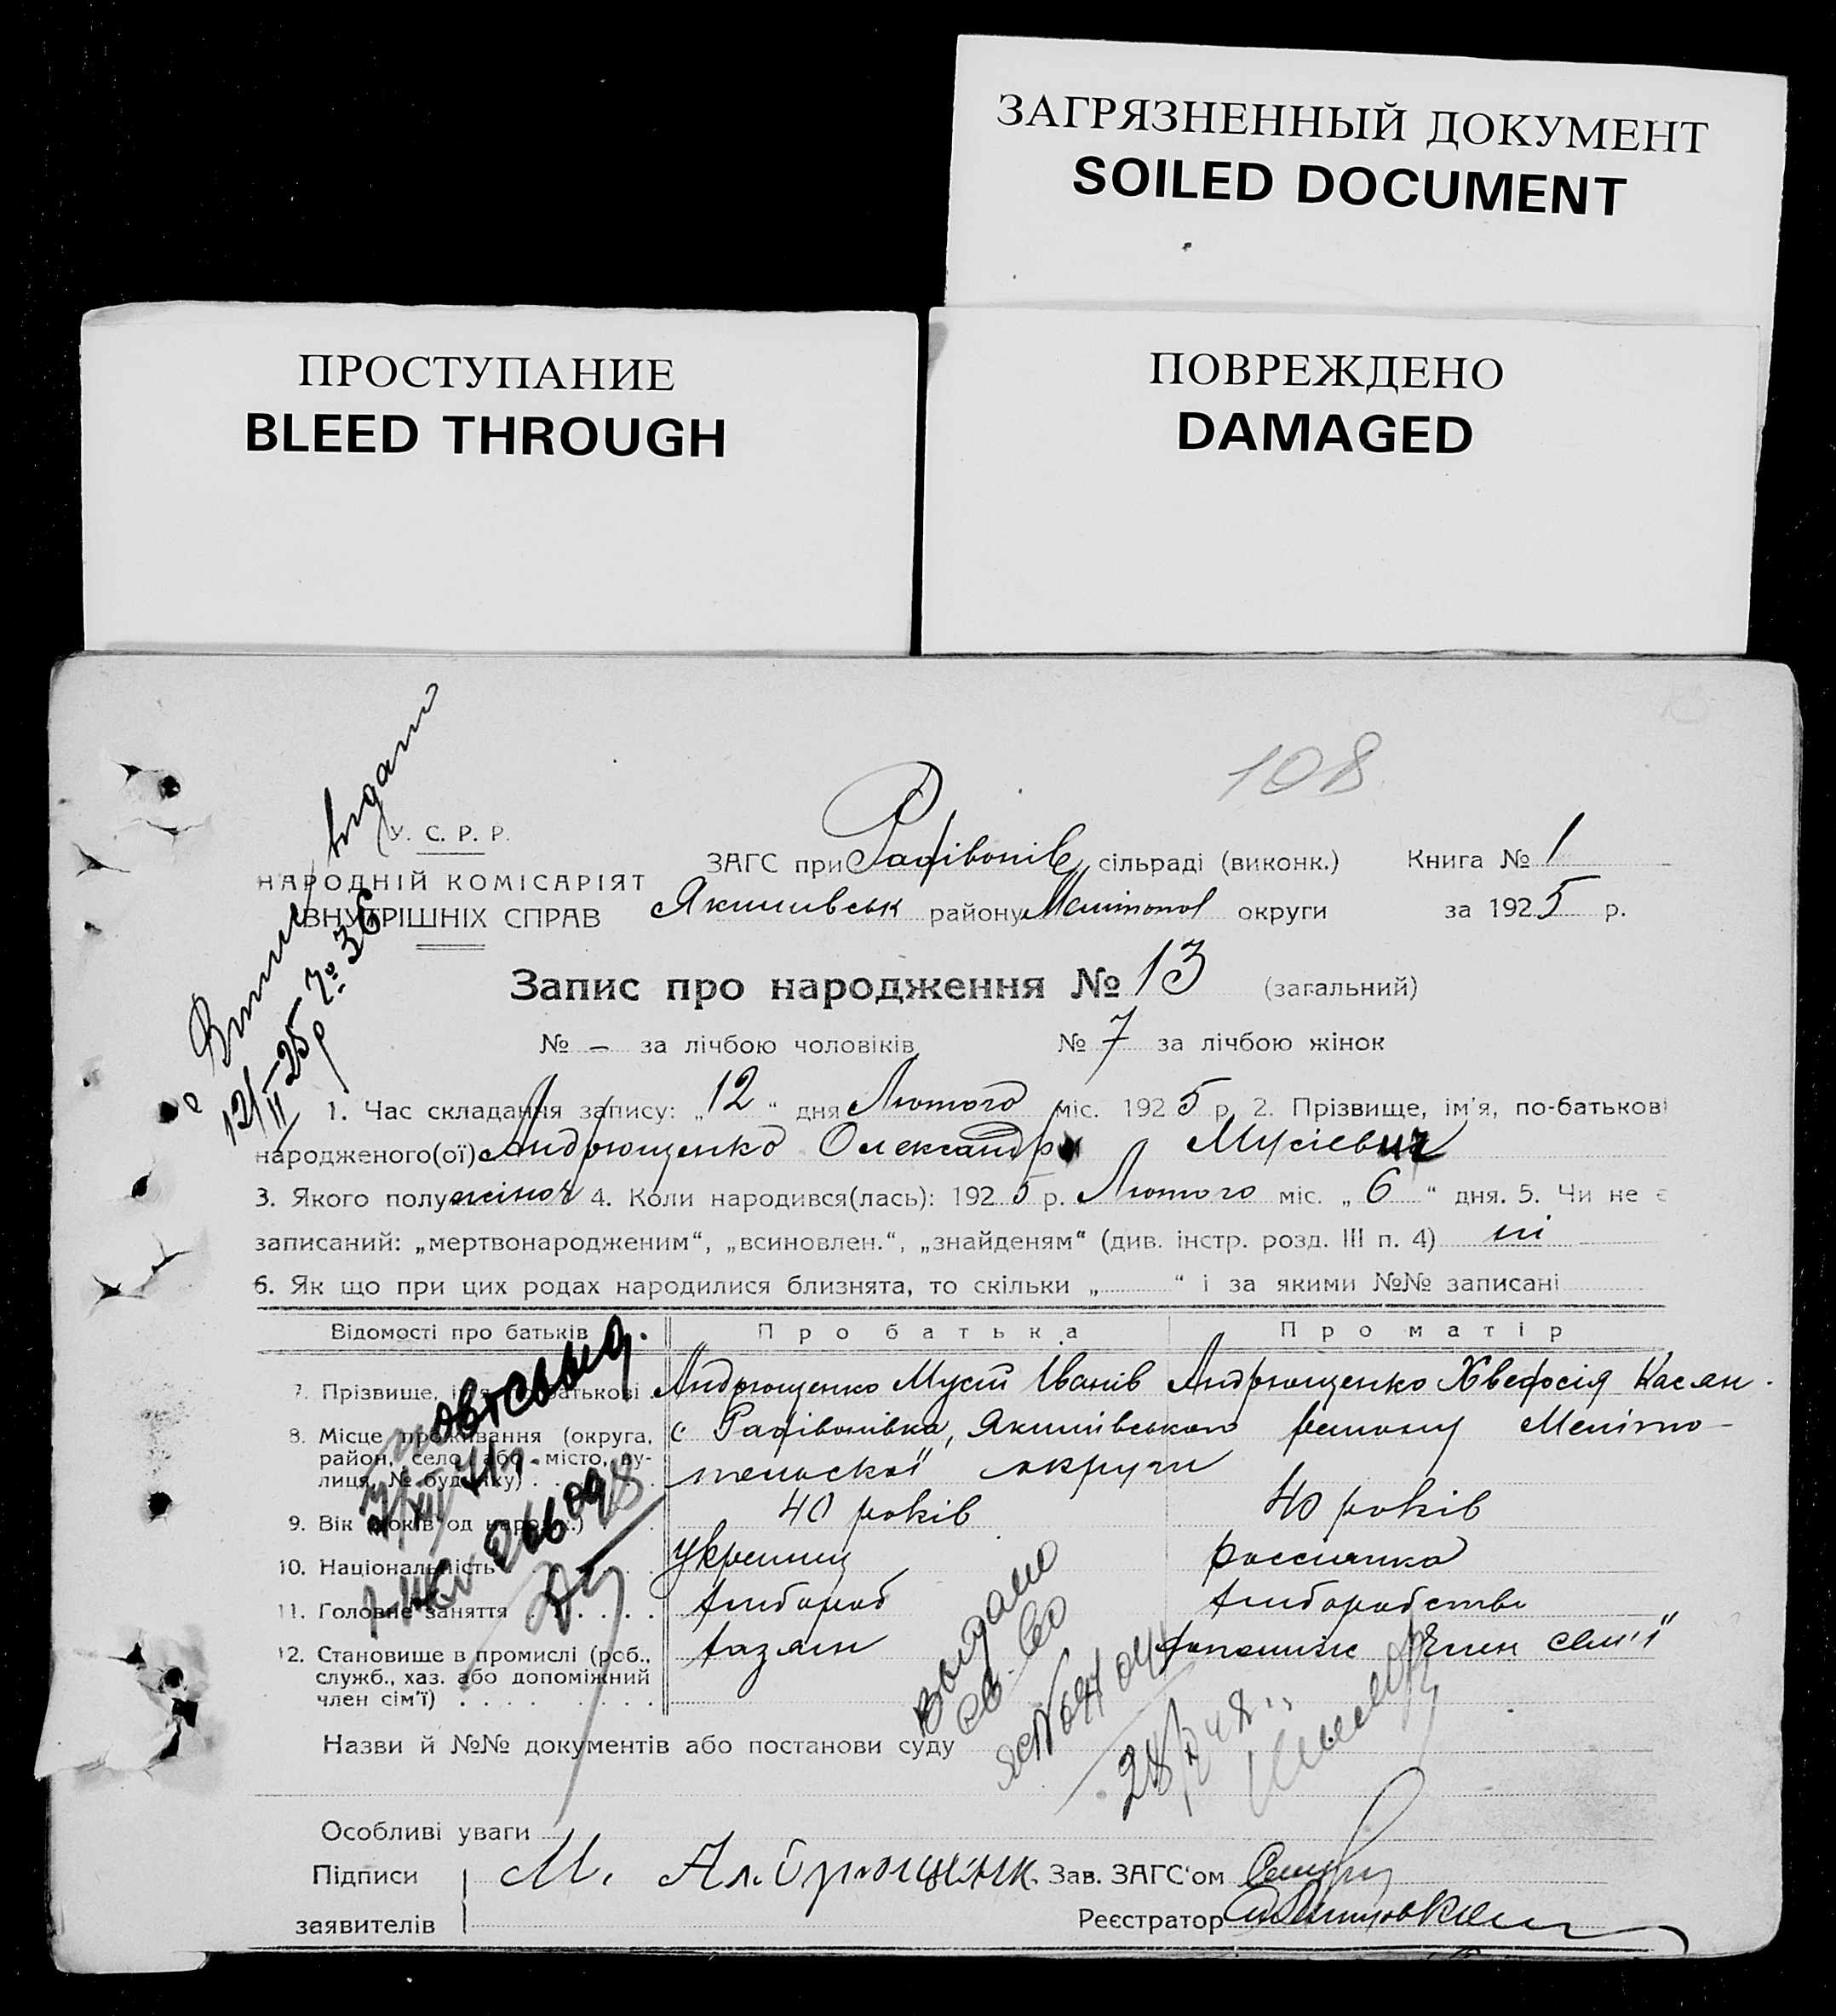 ЗАГРЯЗНЕННЫЙ ДОКУМЕНТ
SOILED DOCUMENT
ПРОСТУПАНИЕ
BLEED THROUGH
ПОВРЕЖДЕНО
DAMAGED
108
видано
У. С. Р. Р.
НАРОДНІЙ КОМІСАРІЯТ
ВНУТРІШНІХ СПРАВ
12/II-25 р № 36
ЗАГС при Радівонів сільраді (виконк.) Книга № 1
Якимівськ району Мелітопол округи за 1925 р.
Запис про народження № 13 (загальний)
№ – за лічбою чоловіків № 7 за лічбою жінок
1. Час складання запису: „12“ дня Лютого міс. 1925 р. 2. Прізвище, ім'я, по-батькові
народженого(ої) Андрющенко Олександр Мусієвич
3. Якого полу жіноч 4. Коли народився(лась): 1925 р. Лютого міс. „6“ дня. 5. Чи не є
записаний: „мертвонародженим“, „всиновлен.“, „знайденям“ (див. інстр. розд. III п. 4) ні
6. Як що при цих родах народилися близнята, то скільки „ “ і за якими №№ записані
Відомості про батьків Про батька Про матір
7. Прізвище, ім'я, по-батькові Андрющенко Мусій Іванів Андрющенко Хведосія Касян.
8. Місце проживання (округа, район, село або місто, вулиця, № будинку) с Радівонівка, Якимівського району Меліто-
польської округи
9. Вік (років од народж.) 40 років 40 років
10. Національність українец россиянка
11. Головне заняття хлібороб хліборобство
12. Становище в промислі (роб., служб., хаз. або допоміжний член сім'ї) хазяін допоміжн член сем'ї
повторный
266098
Выдано
св-во
Назви й №№ документів або постанови суду
Особливі уваги
Підписи М. Андрющенк. Зав. ЗАГС'ом
заявителів Реєстратор